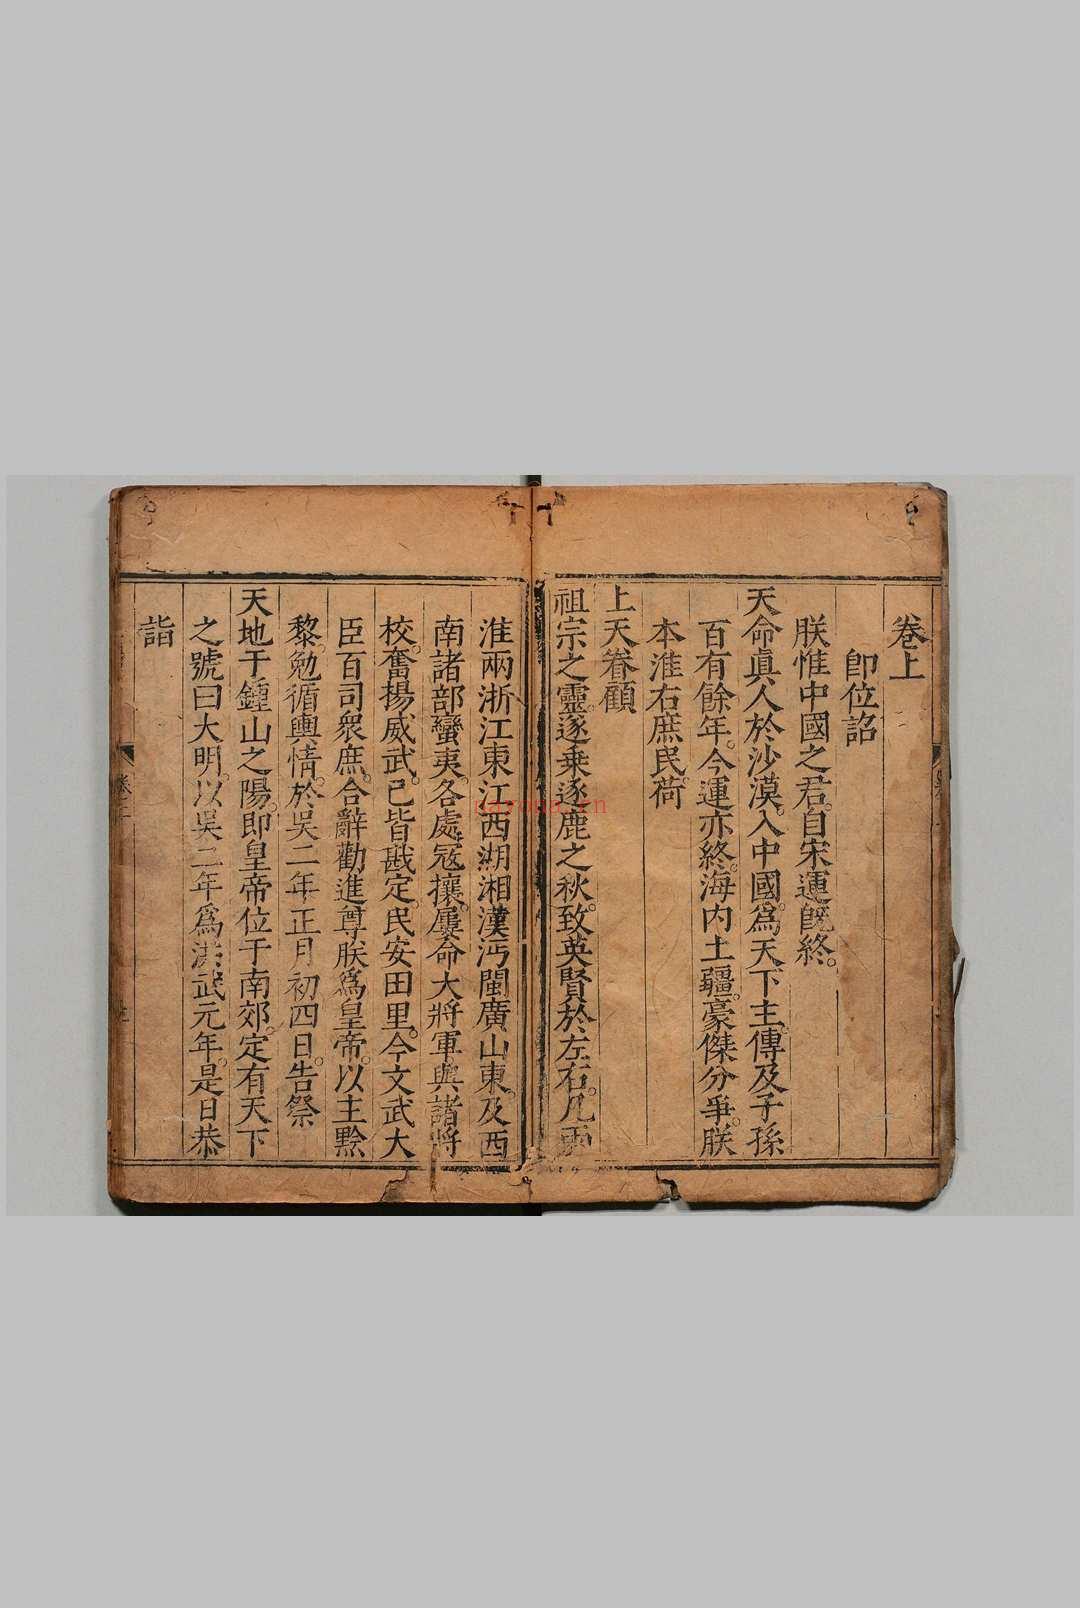 卷上
即位詔
朕惟中國之君。自宋運既終。
天命眞人於沙漠。入中國。爲天下主。傳及子孫
百有餘年。今運亦終。海内土疆。豪傑分爭。朕
本淮右庶民。荷
上天眷顧
祖宗之靈。遂乗逐鹿之秋。致英賢於左右。凡兩
淮兩浙江東江西湖湘漢沔閩廣山東。及西
南諸部蠻夷。各處寇攘。屢命大將軍與諸將
校。奮揚威武。已皆戡定。民安田里。今文武大
臣百司衆庶。合辭勸進尊朕爲皇帝。以主黔
黎。勉循輿情。於吳二年正月初四日。告祭
天地于鍾山之陽。即皇帝位于南郊。定有天下
之號曰大明。以吳二年爲洪武元年。是日恭
詣
卷二
nayona.cn